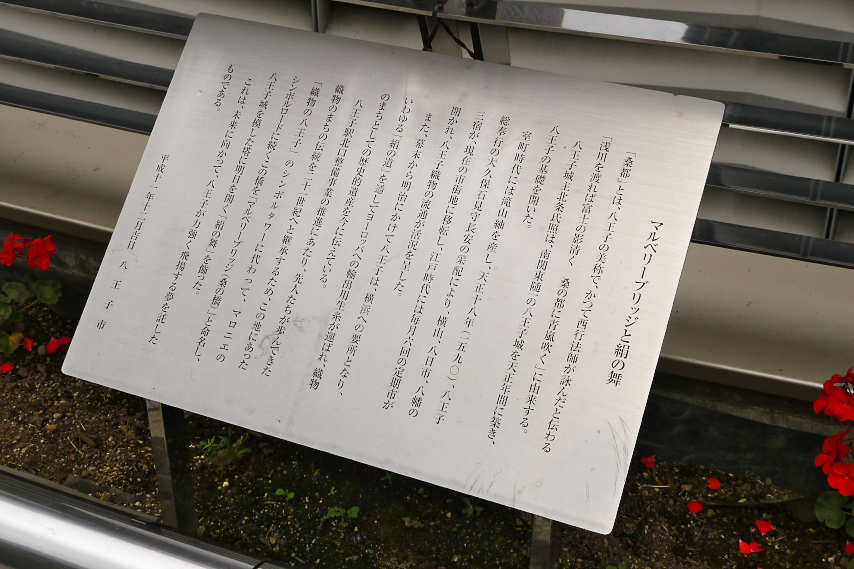 マルベリーブリッジと絹の舞
「桑都」とは、八王子の美称で、かつて西行法師が詠んだと伝わる
「浅川を渡れば富士の影清く 桑の都に青嵐吹く」に由来する。
八王子城主北条氏照は、南関東随一の八王子城を天正年間に築き、
八王子の基礎を開いた。
室町時代には滝山紬を産し、天正十八年(一五九〇)、八王子
総奉行の大久保石見守長安の采配により、横山、八日市、八幡の
三宿が現在の市街地に移転し、江戸時代には毎月六回の定期市が
開かれ、八王子織物の流通が活況を呈した。
また、幕末から明治にかけて八王子は、横浜への要所となり、
いわゆる「絹の道」を通してヨーロッパへの輸出用生糸が運ばれ、織物
のまちとしての歴史的遺産を今に伝えている。
八王子駅北口整備事業の推進にあたり、先人たちが歩んできた
織物のまちの伝統を二十一世紀へと継承するため、この地にあった
「織物の八王子」のシンボルタワーに代わって、マロニエの
シンボルロードに続くこの橋を「マルベリーブリッジ(桑の橋)」と命名し、
八王子城を模した塔に明日を開く「絹の舞」を飾った。
これは、未来に向かって、八王子が力強く飛翔する夢を託した
ものである。
平成十二年十二月吉日 八王子市